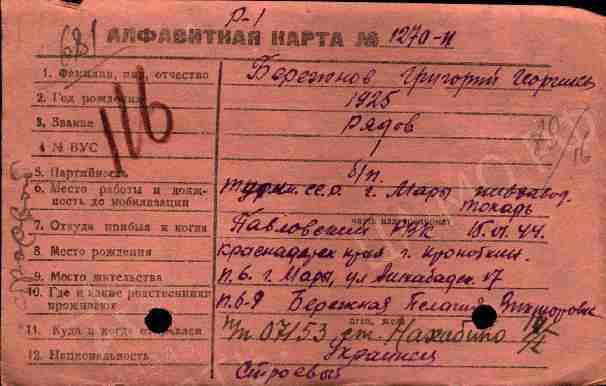 Р-1
681 АЛФАВИТНАЯ КАРТА № 1270-н
1. Фамилия, имя, отчество Бережнов Григорий Георгиев
2. Год рождения 1925
3. Звание Рядов
4 № ВУС 1
116
5. Партийность б/п.
6. Место работы и должность до мобилизации г. Мары пивзавод. токарь
7. Откуда прибыл и когда Павловский РВК 15.VI.44.
8. Место рождения Краснодарск край г. Кропоткин.
9. Место жительства п.6. г. Мары, ул 17
10. Где и какие родственники проживают п.6-9 Бережная Пелагия
11. Куда и когда 07153 ст. Нахабино
12. Национальность Украинец
Строевый